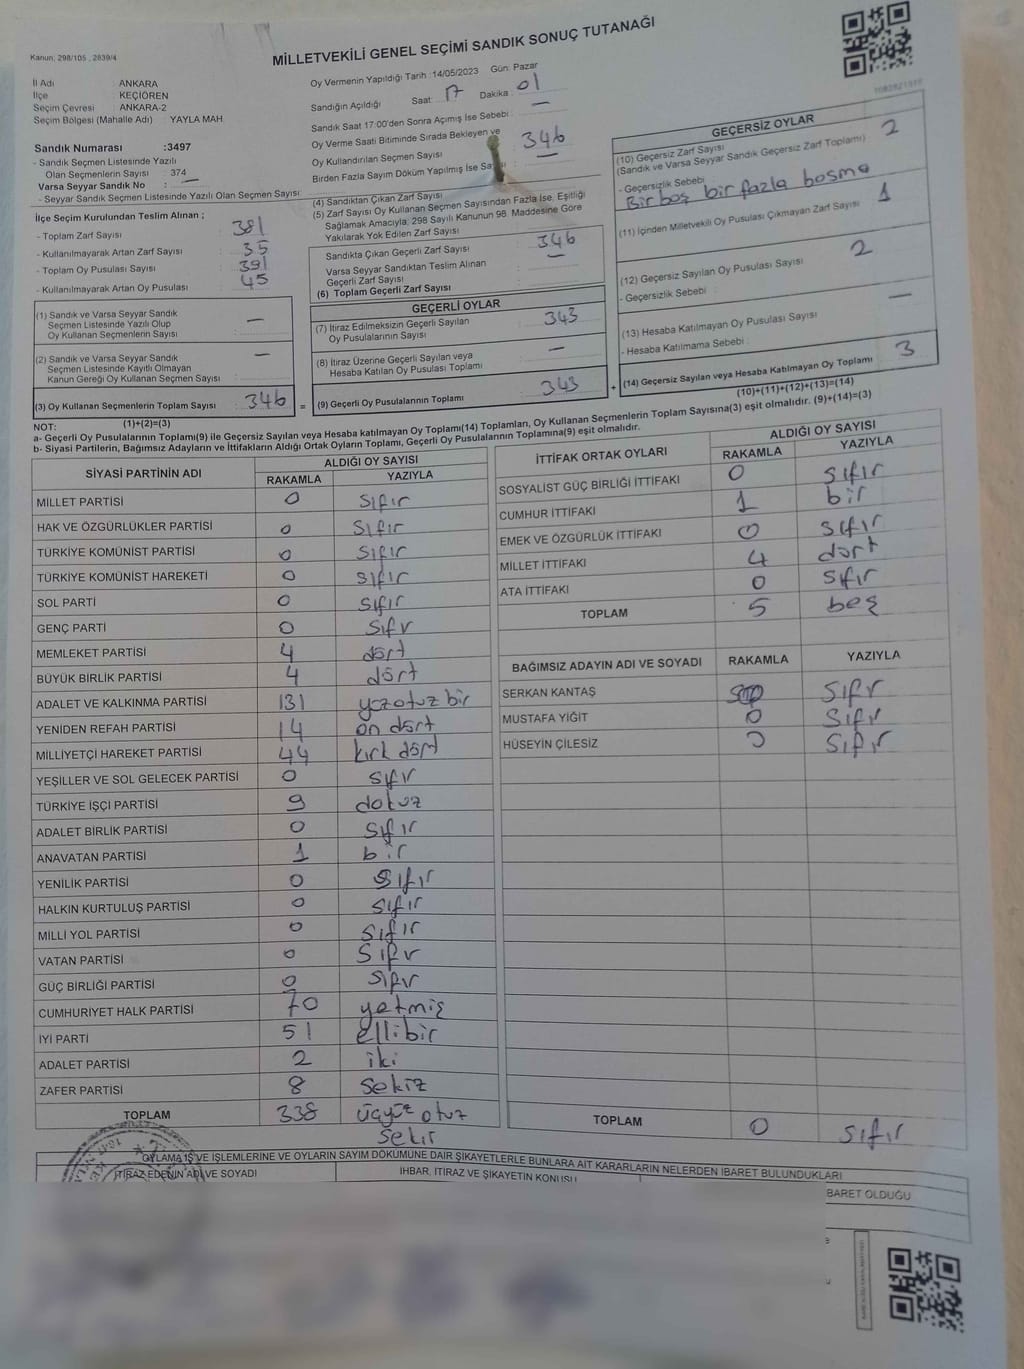 MİLLETVEKİLİ GENEL SEÇİMİ SANDIK SONUÇ TUTANAĞI
Kanun; 298/105 , 2839/4
İl Adı : ANKARA
İlçe : KEÇİÖREN
Seçim Çevresi : ANKARA-2
Seçim Bölgesi (Mahalle Adı) : YAYLA MAH.
Sandık Numarası :3497
- Sandık Seçmen Listesinde Yazılı
Olan Seçmenlerin Sayısı : 374
Varsa Seyyar Sandık No : —
- Seyyar Sandık Seçmen Listesinde Yazılı Olan Seçmen Sayısı :
İlçe Seçim Kurulundan Teslim Alınan ;
- Toplam Zarf Sayısı : 381
- Kullanılmayarak Artan Zarf Sayısı : 35
- Toplam Oy Pusulası Sayısı : 391
- Kullanılmayarak Artan Oy Pusulası : 45
(1) Sandık ve Varsa Seyyar Sandık
Seçmen Listesinde Yazılı Olup
Oy Kullanan Seçmenlerin Sayısı : —
(2) Sandık ve Varsa Seyyar Sandık
Seçmen Listesinde Kayıtlı Olmayan
Kanun Gereği Oy Kullanan Seçmen Sayısı : —
(3) Oy Kullanan Seçmenlerin Toplam Sayısı : 346
(1)+(2)=(3)
Oy Vermenin Yapıldığı Tarih :14/05/2023 Gün: Pazar
Sandığın Açıldığı Saat : 17 Dakika : 01
Sandık Saat 17:00'den Sonra Açımış İse Sebebi : —
Oy Verme Saati Bitiminde Sırada Bekleyen ve
Oy Kullandırılan Seçmen Sayısı : 346
Birden Fazla Sayım Döküm Yapılmış İse Sayısı : —
(4) Sandıktan Çıkan Zarf Sayısı
(5) Zarf Sayısı Oy Kullanan Seçmen Sayısından Fazla İse, Eşitliği
Sağlamak Amacıyla; 298 Sayılı Kanunun 98. Maddesine Göre
Yakılarak Yok Edilen Zarf Sayısı :
Sandıkta Çıkan Geçerli Zarf Sayısı : 346
Varsa Seyyar Sandıktan Teslim Alınan
Geçerli Zarf Sayısı : —
(6) Toplam Geçerli Zarf Sayısı :
GEÇERLİ OYLAR
(7) İtiraz Edilmeksizin Geçerli Sayılan
Oy Pusulalarının Sayısı : 343
(8) İtiraz Üzerine Geçerli Sayılan veya
Hesaba Katılan Oy Pusulası Toplamı : —
= (9) Geçerli Oy Pusulalarının Toplamı : 343 +
GEÇERSİZ OYLAR
(10) Geçersiz Zarf Sayısı : 2
(Sandık ve Varsa Seyyar Sandık Geçersiz Zarf Toplamı)
- Geçersizlik Sebebi :
Bir boş bir fazla basma
(11) İçinden Milletvekili Oy Pusulası Çıkmayan Zarf Sayısı : 1
(12) Geçersiz Sayılan Oy Pusulası Sayısı : 2
- Geçersizlik Sebebi :
(13) Hesaba Katılmayan Oy Pusulası Sayısı : —
- Hesaba Katılmama Sebebi :
(14) Geçersiz Sayılan veya Hesaba Katılmayan Oy Toplamı : 3
(10)+(11)+(12)+(13)=(14)
NOT:
a- Geçerli Oy Pusulalarının Toplamı(9) ile Geçersiz Sayılan veya Hesaba katılmayan Oy Toplamı(14) Toplamları, Oy Kullanan Seçmenlerin Toplam Sayısına(3) eşit olmalıdır. (9)+(14)=(3)
b- Siyasi Partilerin, Bağımsız Adayların ve İttifakların Aldığı Ortak Oyların Toplamı, Geçerli Oy Pusulalarının Toplamına(9) eşit olmalıdır.
SİYASİ PARTİNİN ADI ALDIĞI OY SAYISI
RAKAMLA YAZIYLA
MİLLET PARTİSİ 0 sıfır
HAK VE ÖZGÜRLÜKLER PARTİSİ 0 sıfır
TÜRKİYE KOMÜNİST PARTİSİ 0 sıfır
TÜRKİYE KOMÜNİST HAREKETİ 0 sıfır
SOL PARTİ 0 sıfır
GENÇ PARTİ 0 sıfır
MEMLEKET PARTİSİ 4 dört
BÜYÜK BİRLİK PARTİSİ 4 dört
ADALET VE KALKINMA PARTİSİ 131 yüzotuz bir
YENİDEN REFAH PARTİSİ 14 on dört
MİLLİYETÇİ HAREKET PARTİSİ 44 kırk dört
YEŞİLLER VE SOL GELECEK PARTİSİ 0 sıfır
TÜRKİYE İŞÇİ PARTİSİ 9 dokuz
ADALET BİRLİK PARTİSİ 0 sıfır
ANAVATAN PARTİSİ 1 bir
YENİLİK PARTİSİ 0 sıfır
HALKIN KURTULUŞ PARTİSİ 0 sıfır
MİLLİ YOL PARTİSİ 0 sıfır
VATAN PARTİSİ 0 sıfır
GÜÇ BİRLİĞİ PARTİSİ 0 sıfır
CUMHURİYET HALK PARTİSİ 70 yetmiş
İYİ PARTİ 51 ellibir
ADALET PARTİSİ 2 iki
ZAFER PARTİSİ 8 sekiz
TOPLAM 338 üçyüz otuz
sekiz
İTTİFAK ORTAK OYLARI ALDIĞI OY SAYISI
RAKAMLA YAZIYLA
SOSYALİST GÜÇ BİRLİĞİ İTTİFAKI 0 sıfır
CUMHUR İTTİFAKI 1 bir
EMEK VE ÖZGÜRLÜK İTTİFAKI 0 sıfır
MİLLET İTTİFAKI 4 dört
ATA İTTİFAKI 0 sıfır
TOPLAM 5 beş
BAĞIMSIZ ADAYIN ADI VE SOYADI RAKAMLA YAZIYLA
SERKAN KANTAŞ sıfır
MUSTAFA YİĞİT 0 sıfır
HÜSEYİN ÇİLESİZ 0 sıfır
TOPLAM 0 sıfır
OYLAMA İŞ VE İŞLEMLERİNE VE OYLARIN SAYIM DÖKÜMÜNE DAİR ŞİKAYETLERLE BUNLARA AİT KARARLARIN NELERDEN İBARET BULUNDUKLARI
İTİRAZ EDENİN ADI VE SOYADI İHBAR, İTİRAZ VE ŞİKAYETİN KONUSU
BARET OLDUĞU